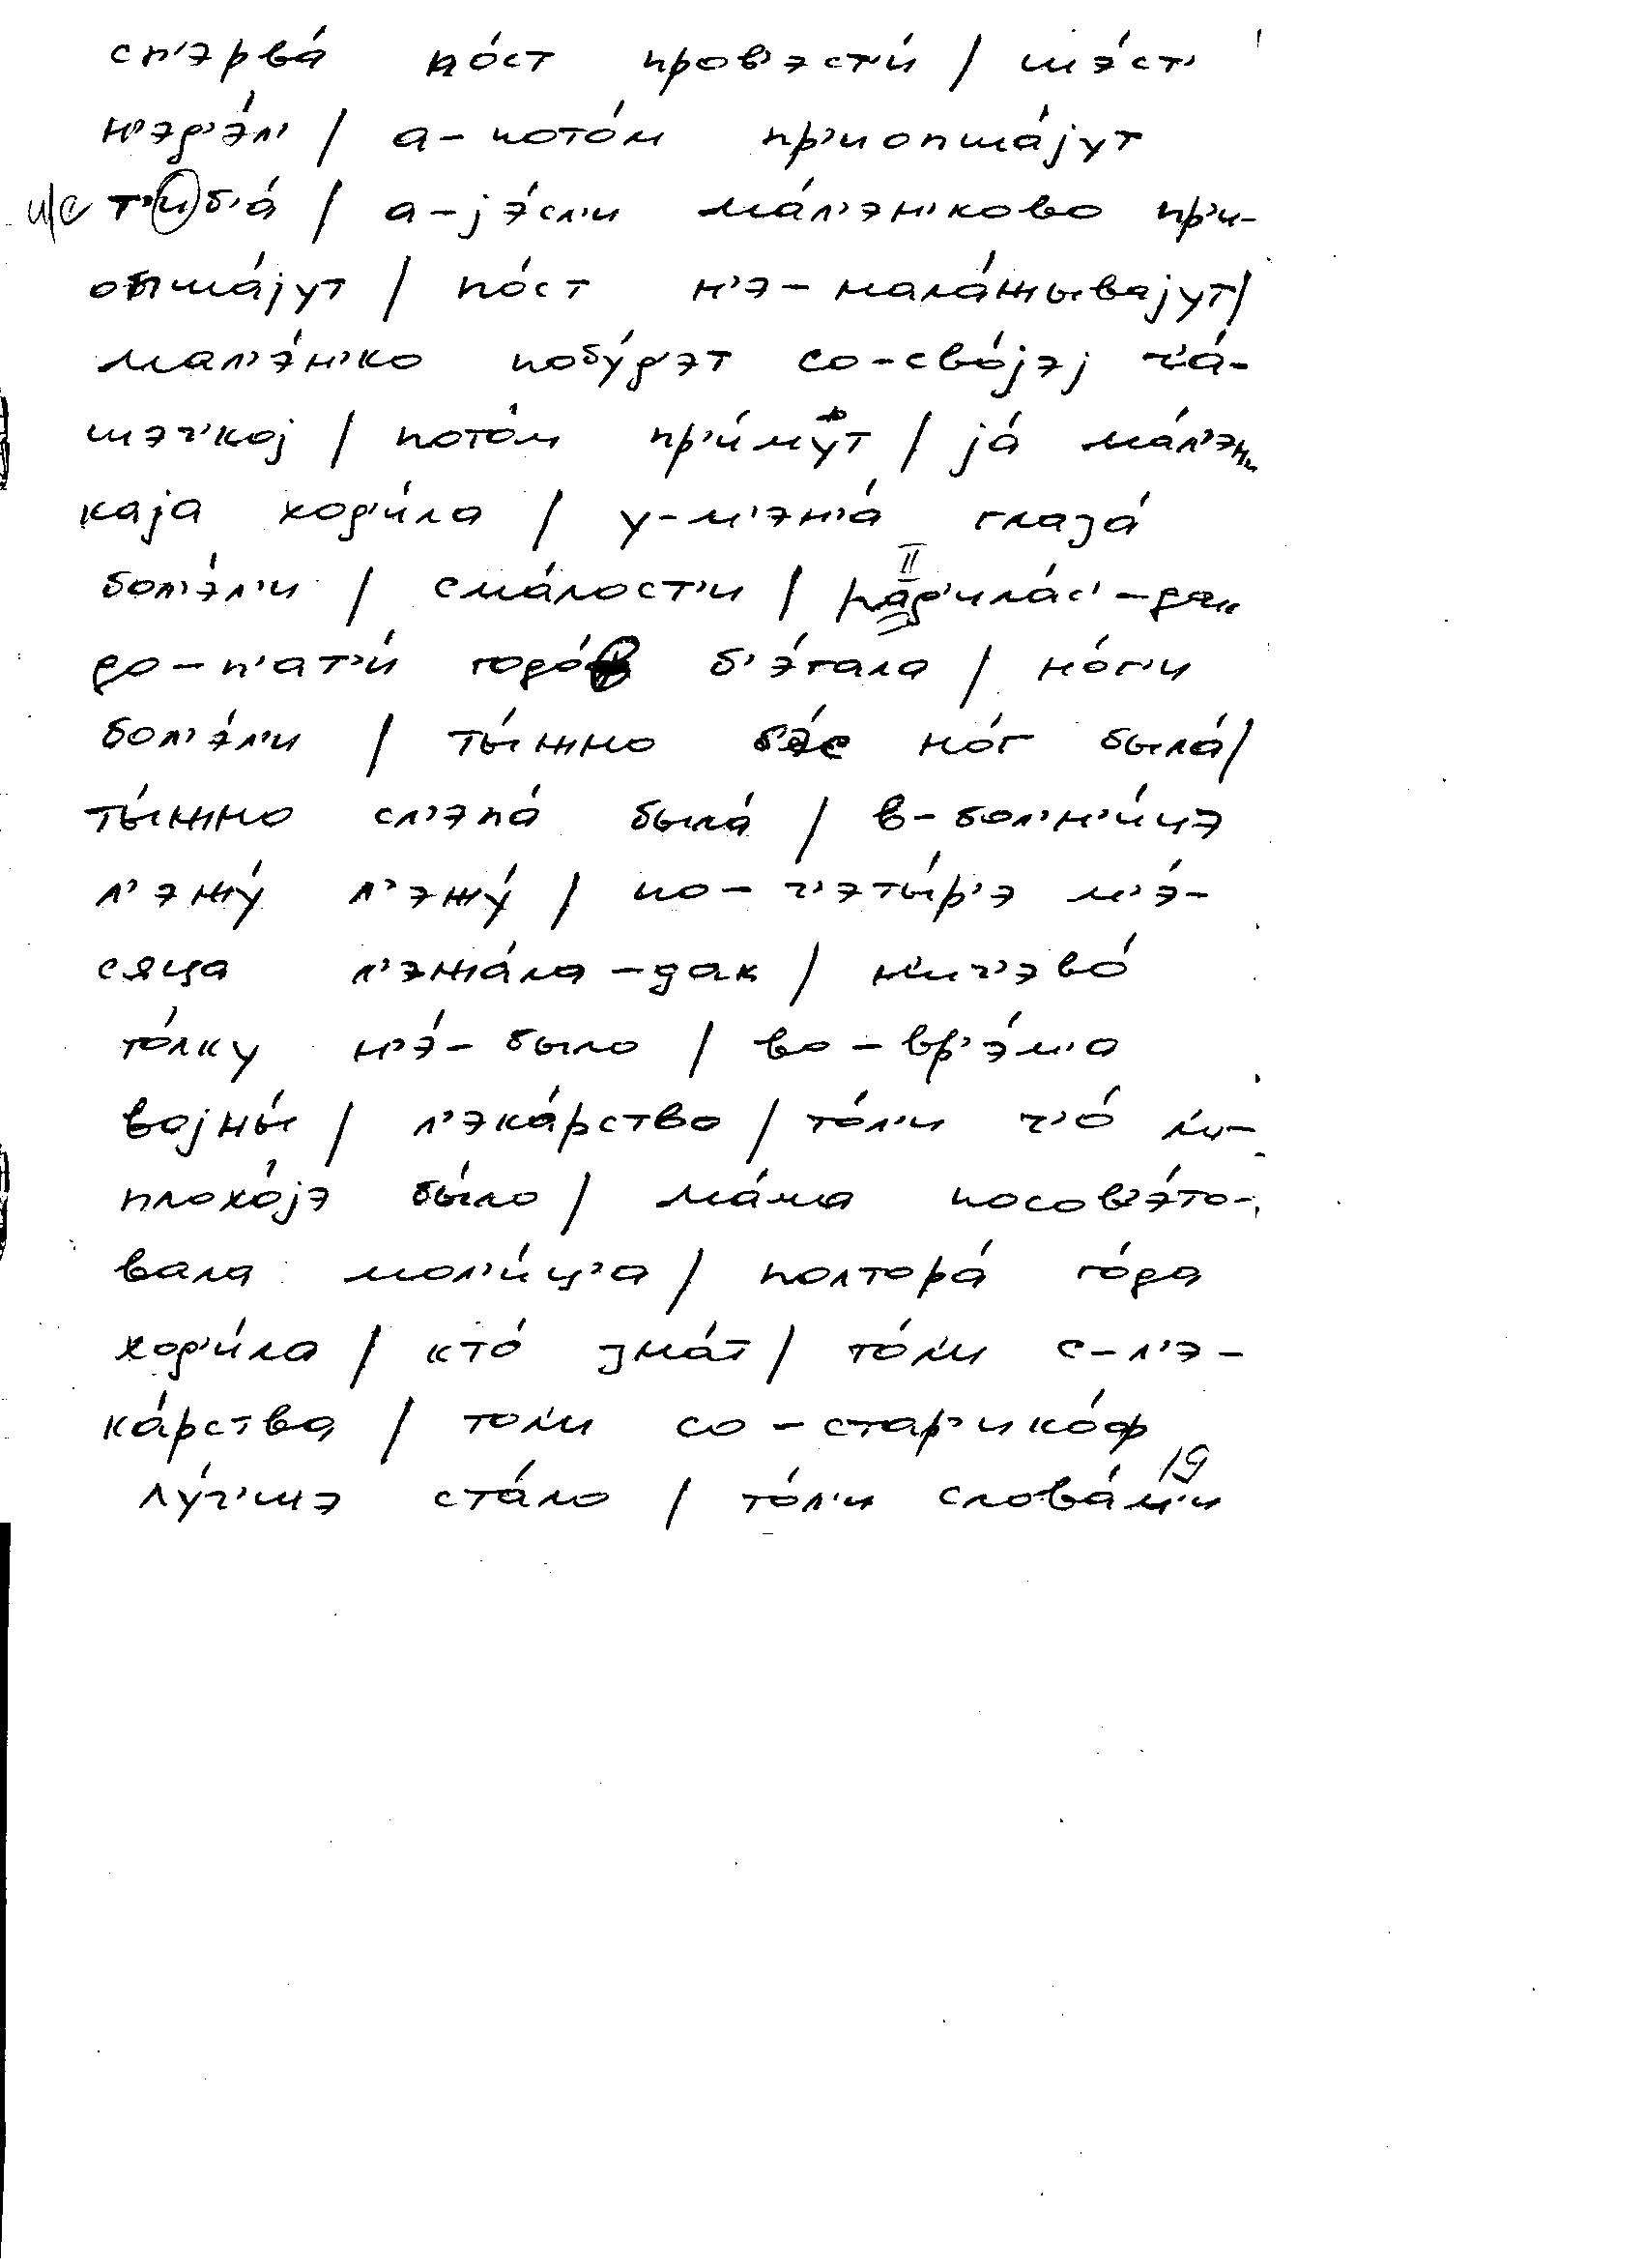 сп'эрва́ по́ст пров'эст'и́ / шэ́ст'
н'эд'э́л' / а-пото́м пр'иопша́jут
и/е т'иб'а́ / а-jэ́сл'и ма́л'эн'ково пр'и-
опша́jут / по́ст н'э-нала́жываjут/
мал'э́н'ко побу́д'эт со-сво́jэj ч'а́-
шэч'коj / пото́м пр'и́мут / jа́ ма́л'эн'
каjа ход'и́ла / у-м'эн'а́ глаза́
бол'э́л'и / сма́лост'и / рад'ила́с'-дак
до-п'ат'и́ годо́в б'э́гала / но́г'и
бол'э́л'и / ты́жно б'эс но́г была́/
ты́жно сл'эпа́ была́ / в-бол'н'и́цэ
л'эжу́ л'эжу́ / по-ч'эты́р'э м'э́-
сяца л'эжа́ла-дак / н'ич'эво́
то́лку н'э́-было / во-вр'э́м'а
воjны́ / л'эка́рство / то́л'и ч'о́ л'и-
плохо́jэ бы́ло / ма́ма посов'э́то-
вала мол'и́ц'а / полтора́ го́да
ход'и́ла / кто́ зна́т / то́л'и с-л'э-
ка́рства / тол'и со-стар'ико́ф
лу́ч'шэ ста́ло / то́л'и слова́м'и
19